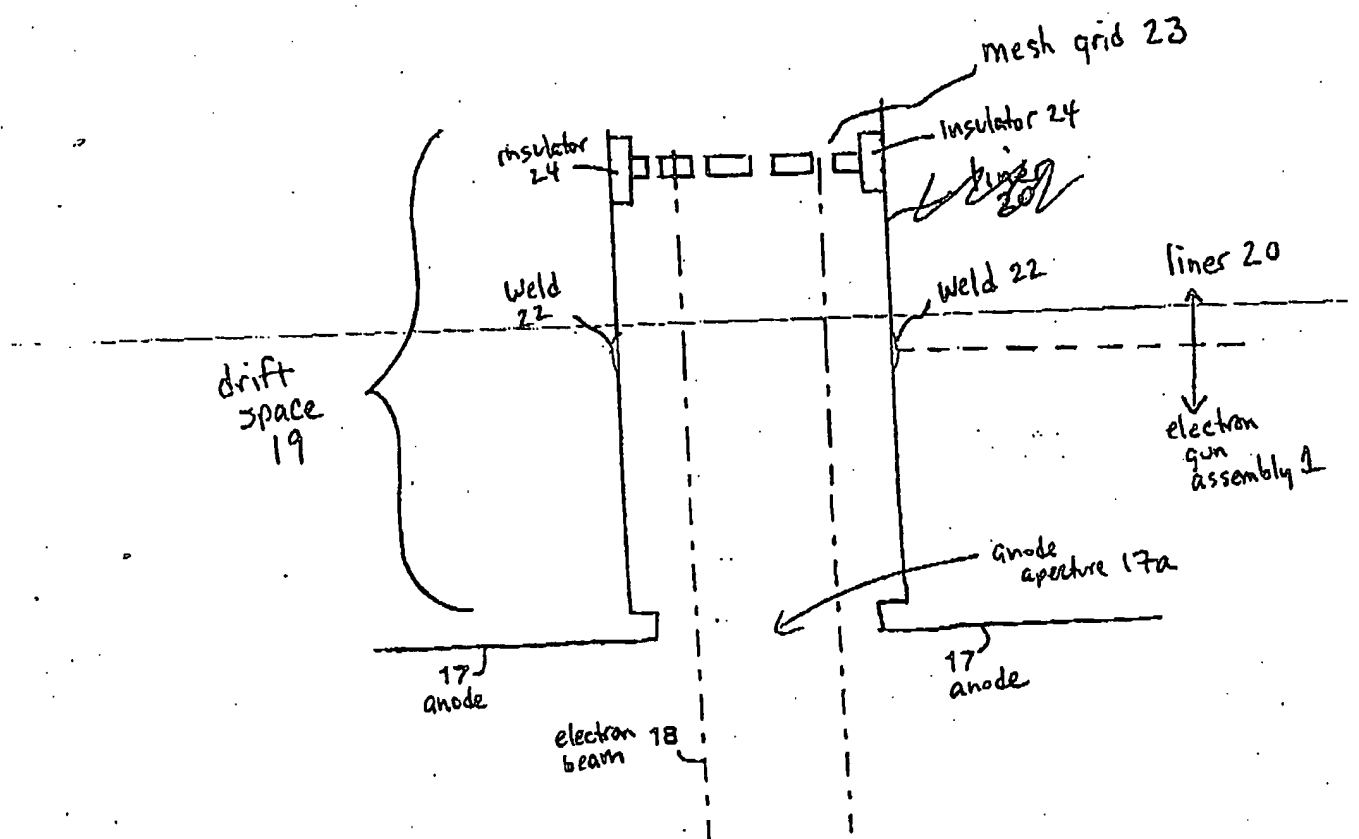 mesh grid 23
insulator
24
Insulator 24
liner
20
Weld
22
Weld 22
liner 20
drift
space
19
electron
gun
assembly 1
anode
aperture 17a
17
anode
17
anode
electron 18
beam